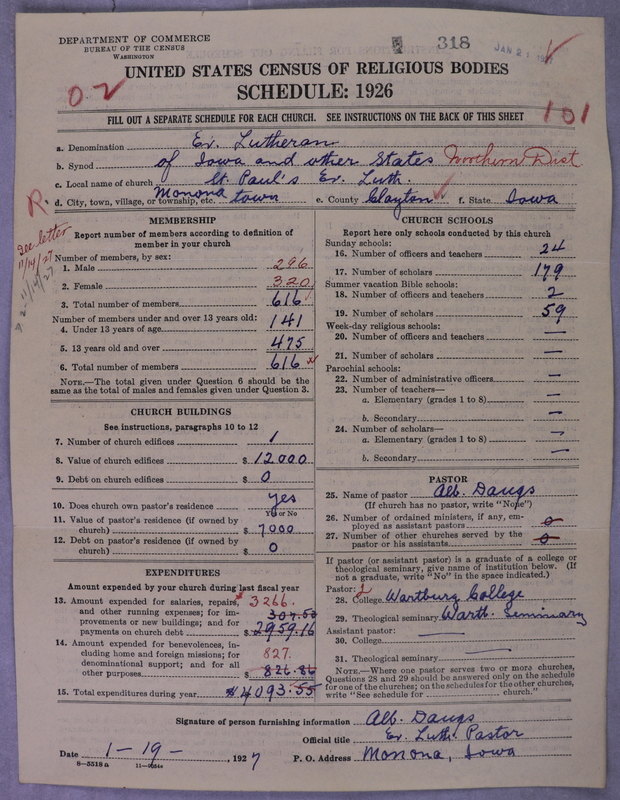 DEPARTMENT OF COMMERCE
BUREAU OF THE CENSUS
WASHINGTON
318
JAN 21
UNITED STATES CENSUS OF RELIGIOUS BODIES
SCHEDULE: 1926
02
101
FILL OUT A SEPARATE SCHEDULE FOR EACH CHURCH. SEE INSTRUCTIONS ON THE BACK OF THIS SHEET
a. Denomination Ev. Lutheran
b. Synod of Iowa and other States Northern Dist
c. Local name of church St. Paul's Ev. Luth.
d. City, town, village, or township, etc. Monona town e. County Clayton f. State Iowa
R.
See letter
11/14/27
MEMBERSHIP
Report number of members according to definition of
member in your church
Number of members, by sex:
1. Male 296
2. Female 320
3. Total number of members 616
Number of members under and over 13 years old:
4. Under 13 years of age 141
5. 13 years old and over 475
6. Total number of members 616
NOTE.—The total given under Question 6 should be the
same as the total of males and females given under Question 3.
CHURCH BUILDINGS
See instructions, paragraphs 10 to 12
7. Number of church edifices 1
8. Value of church edifices $ 12000
9. Debt on church edifices $ 0
10. Does church own pastor's residence yes
Yes or No
11. Value of pastor's residence (if owned by
church) $ 7000
12. Debt on pastor's residence (if owned by
church) $ 0
EXPENDITURES
Amount expended by your church during last fiscal year
13. Amount expended for salaries, repairs, 3266.
and other running expenses; for im-
provements or new buildings; and for 307.50
payments on church debt $ 2959.16
14. Amount expended for benevolences, in-
cluding home and foreign missions; for 827.
denominational support; and for all
other purposes $ 826.86
15. Total expenditures during year $ 4093.55
CHURCH SCHOOLS
Report here only schools conducted by this church
Sunday schools:
16. Number of officers and teachers 24
17. Number of scholars 179
Summer vacation Bible schools:
18. Number of officers and teachers 2
19. Number of scholars 59
Week-day religious schools:
20. Number of officers and teachers —
21. Number of scholars —
Parochial schools:
22. Number of administrative officers —
23. Number of teachers—
a. Elementary (grades 1 to 8) —
b. Secondary —
24. Number of scholars—
a. Elementary (grades 1 to 8) —
b. Secondary —
PASTOR
25. Name of pastor Alb. Daugs
(If church has no pastor, write "None")
26. Number of ordained ministers, if any, em-
ployed as assistant pastors 0
27. Number of other churches served by the
pastor or his assistants 0
If pastor (or assistant pastor) is a graduate of a college or
theological seminary, give name of institution below. (If
not a graduate, write "No" in the space indicated.)
Pastor:
28. College Wartburg College
29. Theological seminary Wartb. Seminary
Assistant pastor:
30. College —
31. Theological seminary —
NOTE.—Where one pastor serves two or more churches,
Questions 28 and 29 should be answered only on the schedule
for one of the churches; on the schedules for the other churches,
write "See schedule for church."
Signature of person furnishing information Alb. Daugs
Official title Ev. Luth. Pastor
Date 1-19-, 1927 P. O. Address Monona, Iowa
8—5518 a